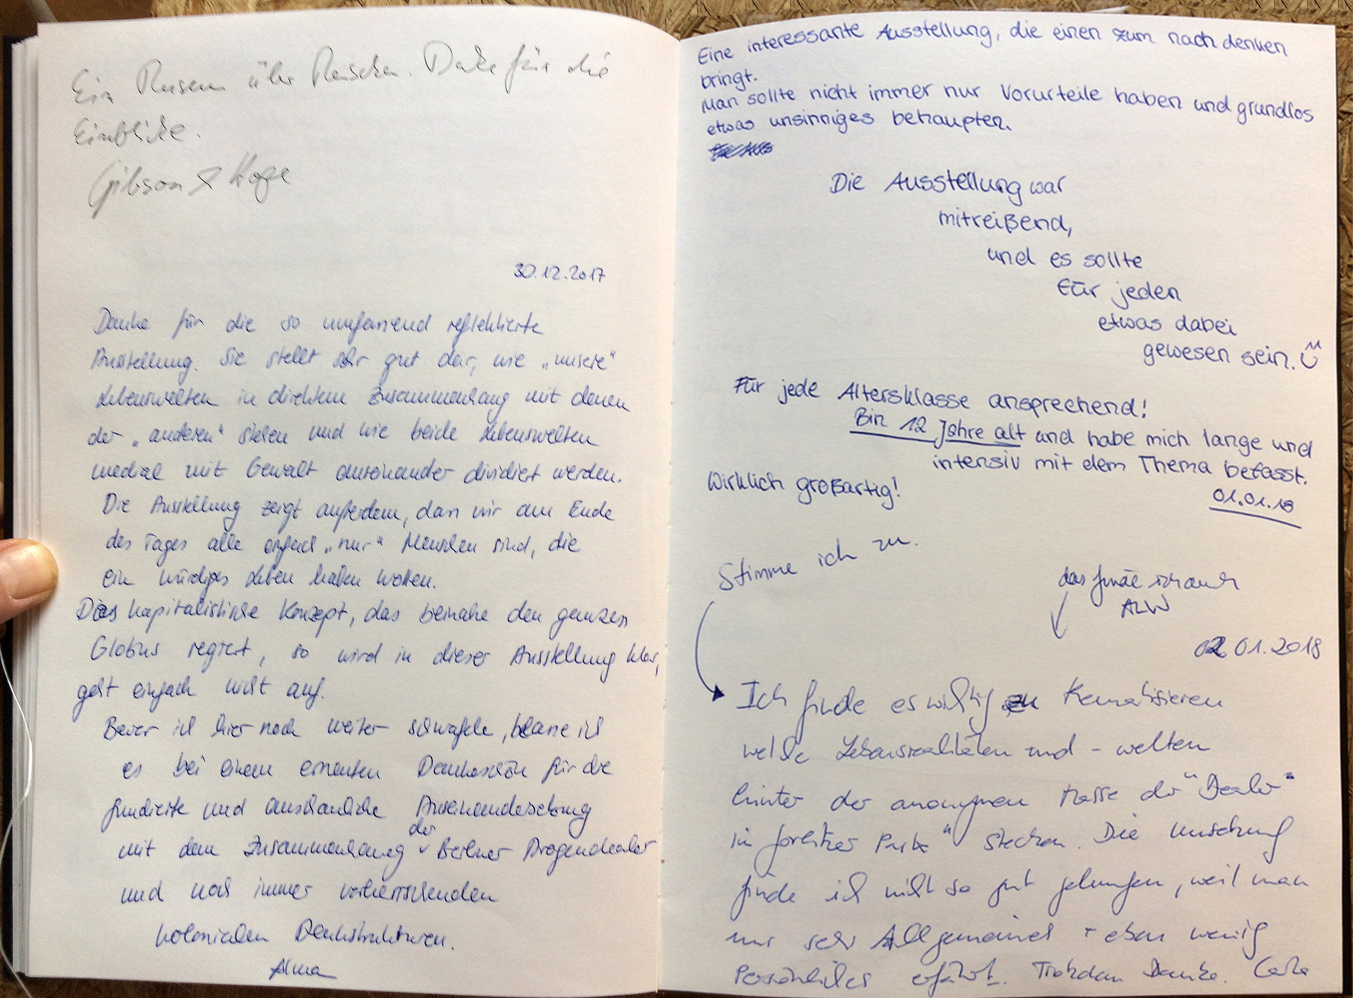 Ein Museum über Menschen. Danke für die
Einblicke.
Gibson & Hope
30.12.2017
Danke für die so umfassend reflektierte
Ausstellung. Sie stellt sehr gut dar, wie „unsere"
Lebenswelten in direktem Zusammenhang mit denen
der „anderen" stehen und wie beide Lebenswelten
medial mit Gewalt auseinander dividiert werden.
Die Ausstellung zeigt außerdem, dass wir am Ende
des Tages alle einfach „nur" Menschen sind, die
ein würdiges Leben haben wollen.
Das kapitalistische Konzept, das beinahe den ganzen
Globus regiert, so wird in dieser Ausstellung klar,
geht einfach nicht auf.
Bevor ich hier noch weiter schwafele, belasse ich
es bei einem erneuten Dankeschön für die
fundierte und anschauliche Auseinandersetzung
mit dem Zusammenhang der Berliner Drogendealer
und noch immer vorherrschenden
kolonialen Denkstrukturen.
Alma
Eine interessante Ausstellung, die einen zum nach denken
bringt.
Man sollte nicht immer nur Vorurteile haben und grundlos
etwas unsinniges behaupten.
Die Ausstellung war
mitreißend,
und es sollte
Für jeden
etwas dabei
gewesen sein.
Für jede Altersklasse ansprechend!
Bin 12 Jahre alt und habe mich lange und
intensiv mit dem Thema befasst.
Wirklich großartig!
01.01.18
Stimme ich zu.
das finde ich auch
ALW
02.01.2018
Ich finde es wichtig zu thematisieren
welche Lebensrealitäten und - welten
hinter der anonymen Masse der "Dealer"
im Görlitzer Park" stecken. Die Umsetzung
finde ich nicht so gut gelungen, weil man
nur sehr Allgemeines + eben wenig
Persönliches erfährt. Trotzdem Danke.